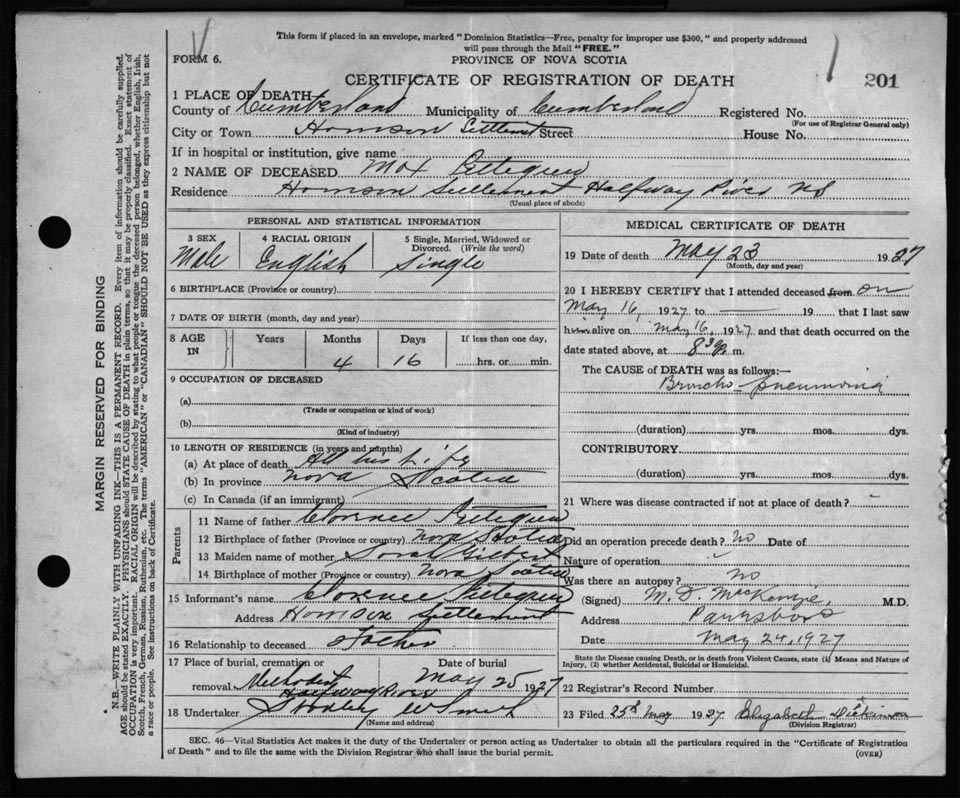 This form if placed in an envelope, marked "Dominion Statistics—Free, penalty for improper use $300," and properly addressed
will pass through the Mail "FREE."
FORM 6.
PROVINCE OF NOVA SCOTIA
CERTIFICATE OF REGISTRATION OF DEATH
201
1 PLACE OF DEATH
County of Cumberland Municipality of Cumberland Registered No.
(For use of Registrar General only)
City or Town Settlement Street House No.
If in hospital or institution, give name
2 NAME OF DECEASED Max
Residence Settlement Halfway River NS
(Usual place of abode)
PERSONAL AND STATISTICAL INFORMATION
3 SEX
Male
4 RACIAL ORIGIN
English
5 Single, Married, Widowed or Divorced. (Write the word)
Single
6 BIRTHPLACE (Province or country)
7 DATE OF BIRTH (month, day and year)
8 AGE IN
Years Months Days If less than one day,
4 16 hrs. or min.
9 OCCUPATION OF DECEASED
(a)
(Trade or occupation or kind of work)
(b)
(Kind of industry)
10 LENGTH OF RESIDENCE (in years and months)
(a) At place of death All his life
(b) In province Nova Scotia
(c) In Canada (if an immigrant)
Parents
11 Name of father Clarence
12 Birthplace of father (Province or country) Nova Scotia
13 Maiden name of mother Sarah Gilbert
14 Birthplace of mother (Province or country) Nova Scotia
15 Informant's name Clarence
Address Settlement
16 Relationship to deceased Father
17 Place of burial, cremation or Date of burial
removal Methodist May 25 1927
Halfway River
18 Undertaker Stanley W Smith
(Name and address)
MEDICAL CERTIFICATE OF DEATH
19 Date of death May 23 1927
(Month, day and year)
20 I HEREBY CERTIFY that I attended deceased from on
May 16, 1927 to 19 that I last saw
him alive on May 16, 1927 and that death occurred on
date stated above, at 8 30 p. m.
The CAUSE of DEATH was as follows:—
Broncho-pneumonia
(duration) yrs. mos. dys.
CONTRIBUTORY
(duration) yrs. mos. dys.
21 Where was disease contracted if not at place of death?
Did an operation precede death? No Date of
Nature of operation
Was there an autopsy? No
(Signed) M. D. MacKenzie, M.D.
Address Parrsboro
Date May 24, 1927
State the Disease causing Death, or in death from Violent Causes, state (1) Means and Nature of
Injury, (2) whether Accidental, Suicidal or Homicidal.
22 Registrar's Record Number
23 Filed 25th May 1927. Elizabeth Dickinson
(Division Registrar)
SEC. 46—Vital Statistics Act makes it the duty of the Undertaker or person acting as Undertaker to obtain all the particulars required in the "Certificate of Registration
of Death" and to file the same with the Division Registrar who shall issue the burial permit.
(OVER)
MARGIN RESERVED FOR BINDING
N.B.—WRITE PLAINLY WITH UNFADING INK—THIS IS A PERMANENT RECORD. Every item of information should be carefully supplied.
AGE should be stated EXACTLY. PHYSICIANS should STATE CAUSE OF DEATH in plain terms, so that it may be properly classified. Exact statement of
OCCUPATION is very important. RACIAL ORIGIN will be described by stating to what people or tongue the deceased person belonged, whether English, Irish,
Scotch, French, German, Russian, Ruthenian, etc. The terms "AMERICAN" or "CANADIAN" SHOULD NOT BE USED as they express citizenship but not
a race or people. See instructions on back of Certificate.